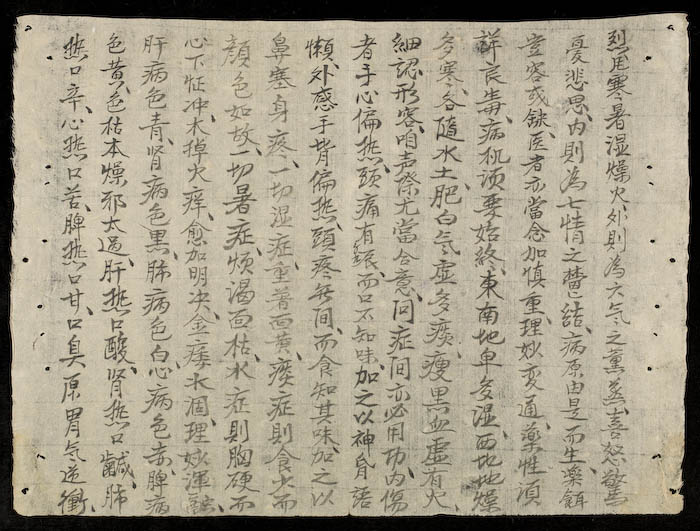 烈因寒暑湿燥火外則為六氣之薰蒸喜怒驚
憂悲思内則為七情之欝結病原由是而生藥餌
豈容或缺医者亦當念加慎重理妙変通藥性湏
詳良毒病机湏要始終東南地卑多湿西地地燥
多寒各隨水土肥白气虚多痰瘦黑血虚有火
細認形容咱声察尤當会意问症间亦必用功内傷
者手心偏热頭痛有間而口不知味加之以神昏語
懒外感手背偏热頭疼無间而食知其味加之以
鼻塞身疼一切湿症重着面黄痰症則食少而
顔色如故一切暑症烦渴面枯水症則胸硬而
心下怔冲木掉火痒愈加明决金痿水涸理妙渾融
肝病色青肾病色黑肺病色白心病色赤脾病
色黄色枯本燥邪太過肝热口酸肾热口鹹肺
热口辛心热口苦脾热口甘口臭原胃气逆衝